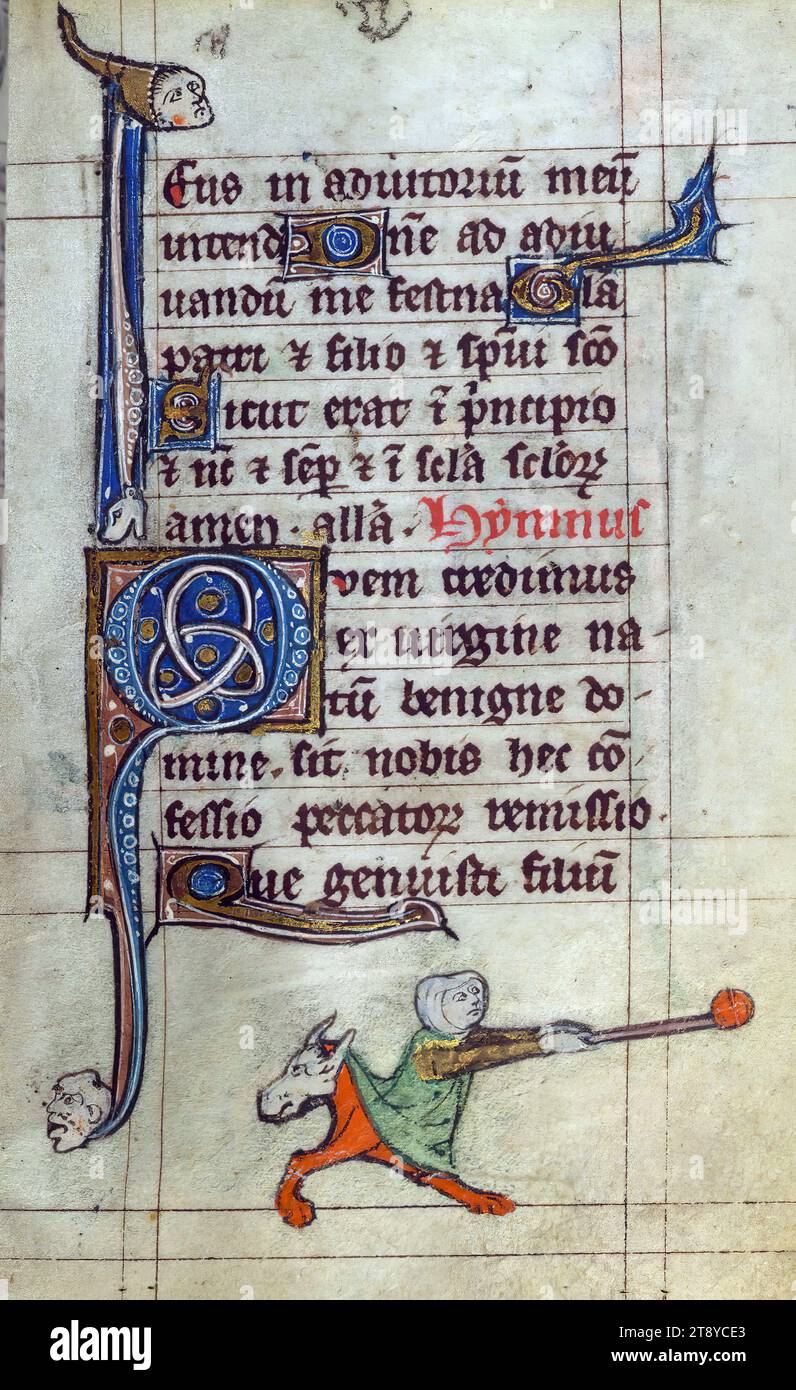 Eus in adiutoriū meū
intend Dn̄e ad adiu
uandū me festina Gl̄a
patri ⁊ filio ⁊ sp̄ui sc̄o
Sicut erat ī p̄ncipio
⁊ nc̄ ⁊ sēp ⁊ ī scl̄a scl̄oꝝ
amen . all̄a . Hymnus
Quem credimus
ex uirgine na-
tū benigne do-
mine . sit nobis hec cō
fessio peccatoꝝ remissio.
Que genuisti filiū
alamy
Image ID: 2T8YCE3
www.alamy.com